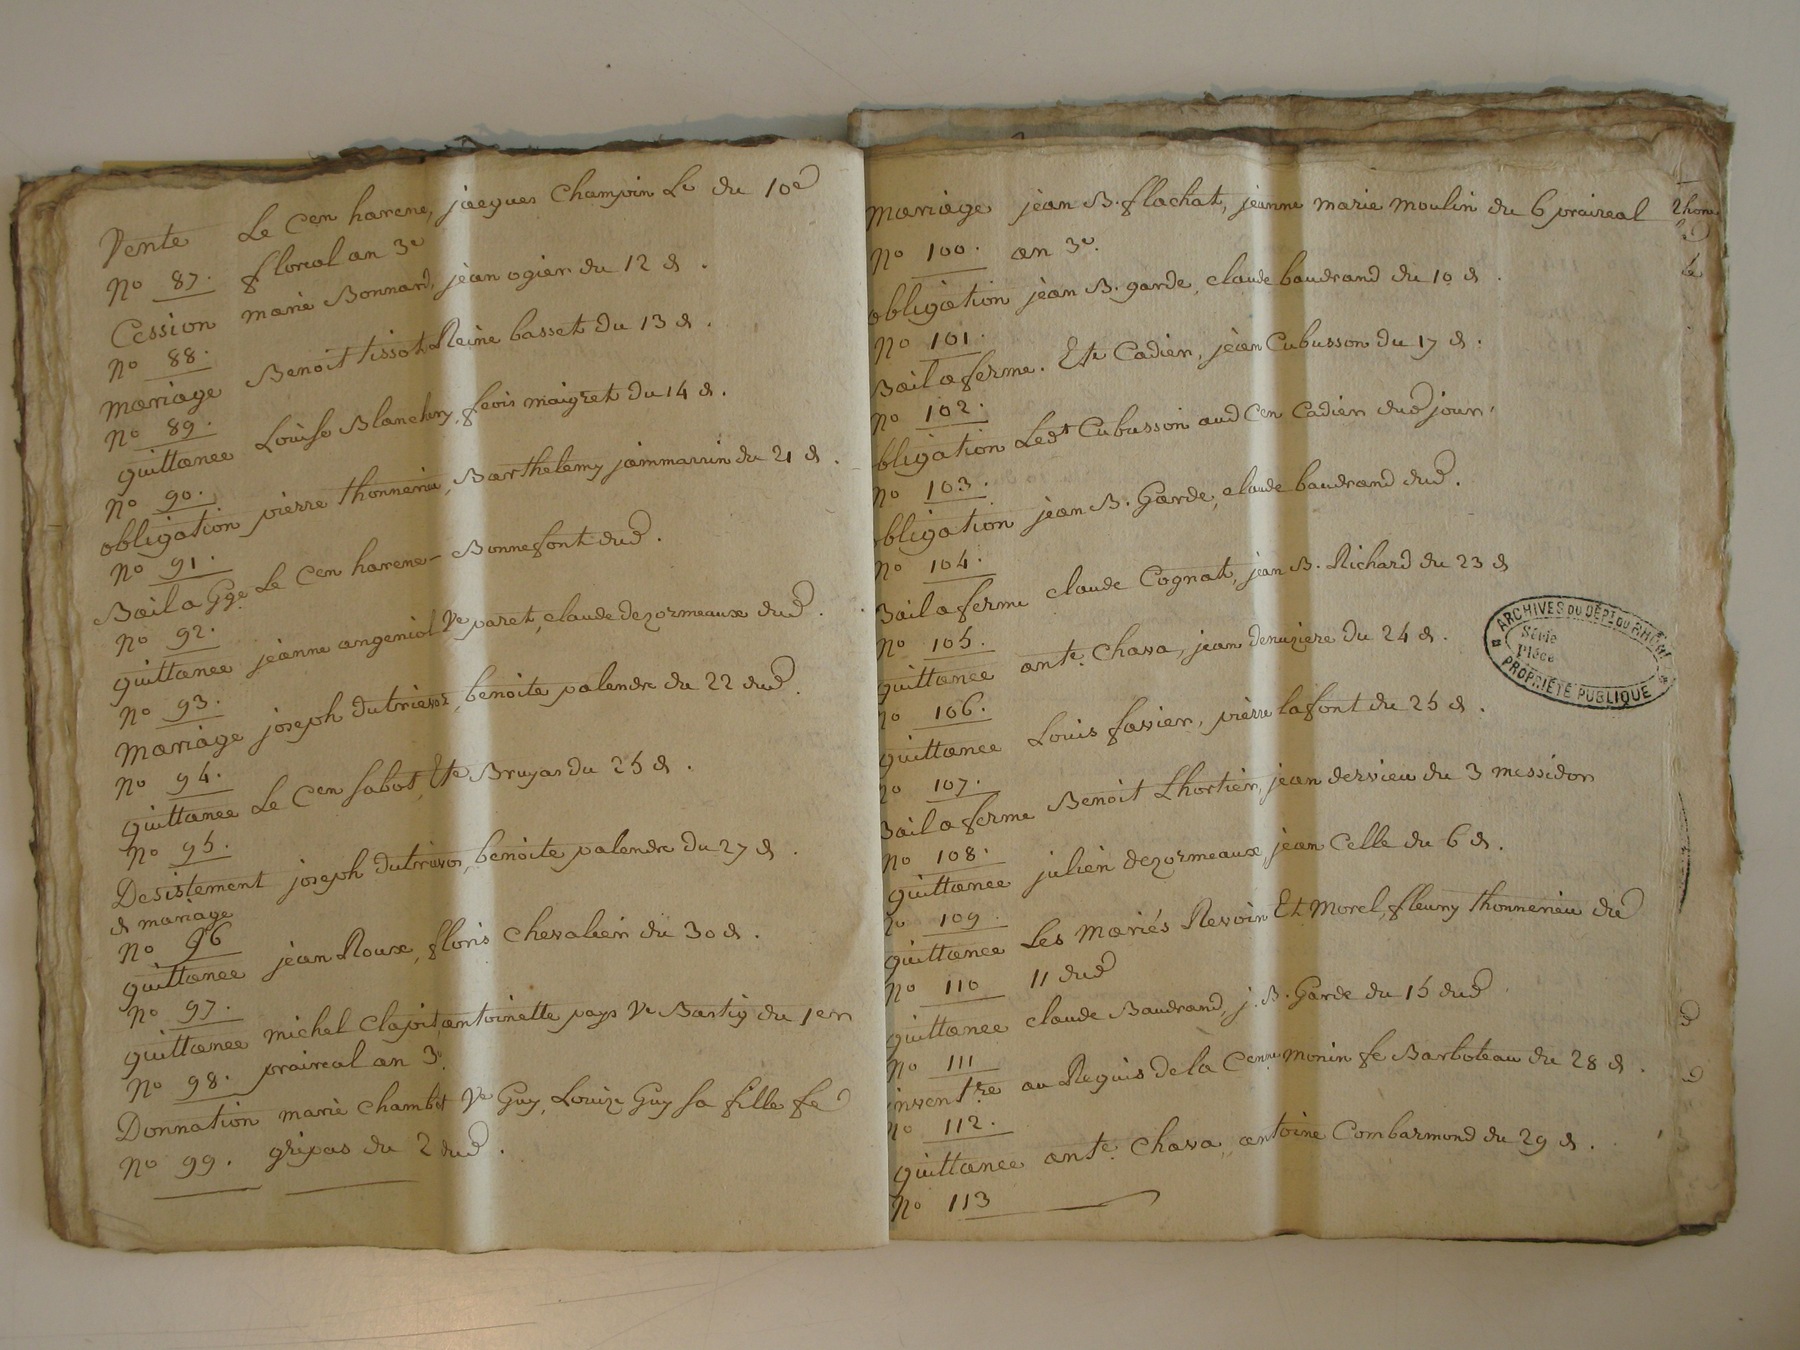 Vente Le Cen harene, jacques Champin Le du 10e
No 87. floreal an 3e
Cession marie Bonnard, jean ogier du 12 d.
No 88.
mariage Benoit tissot Reine basset du 13 d.
No 89.
quittance Louise Blanchery, feois maigret du 14 d.
No 90.
obligation pierre thonnerieu, Barthelemy jammarrin du 21 d.
No 91.
Bail a Gge Le Cen harene - Bonnefont dud.
No 92.
quittance jeanne angeniol Ve paret, claude dezormeaux dud.
No 93.
mariage joseph dutrievoz, benoite palendre du 22 dud.
No 94.
quittance Le Cen sabot, Ete Bruyas du 25 d.
No 95.
Desistement joseph dutrievoz, benoite palendre du 27 d.
d mariage
No 96
quittance jean Roux, floris chevalier du 30 d.
No 97.
quittance michel clapit, antoinette pays Ve Bastig du 1er
No 98. praireal an 3e
Donnation marie chambet Ve Guy, Louize Guy sa fille fe
No 99. gripas du 2 dud.
mariage jean B. flachat, jeanne marie moulin du 6 praireal
No 100. an 3e.
obligation jean B. garde, claude baudrand du 10 d.
No 101.
Bail a ferme. Ete Cadier, jean Cubusson du 17 d.
No 102.
bligation Ledt Cubusson aud Cen Cadier dud jour.
No 103.
bligation jean B. Garde, claude baudrand dud.
No 104.
Bail a ferme claude Cognat, jean B. Richard du 23 d
No 105.
quittance ante. Chava, jean denuziere du 24 d.
No 106.
quittance Louis favier, pierre lafont du 25 d.
No 107.
Bail a ferme Benoit Lhortier, jean dervieu du 3 messidor
No 108.
quittance julien dezormeaux, jean Celle du 6 d.
No 109.
quittance Les mariés Revoin Et Morel, fleury thonnerieu du
No 110 11 dud
quittance claude Baudrand, j. B. Garde du 15 dud
No 111
invent re au Requis de la Cenne monin fe Barboteau du 28 d.
No 112.
quittance ante. Chava, antoine Combarmond du 29 d.
No 113
ARCHIVES DU DÉPT DU RHÔNE
Série
Pièce
PROPRIÉTÉ PUBLIQUE